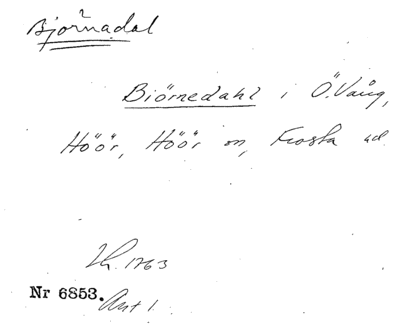 Björnadal
Biörnedahl i Ö. Vång,
Höör, Höör sn, Frosta hd.
1763
Nr 6853. Ant 1.